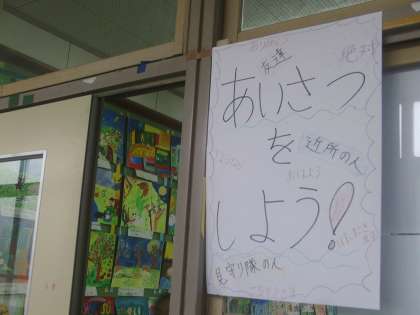 友達
絶対
あいさつ
を
近所の人
おはよう
しよう!
見守り隊の人